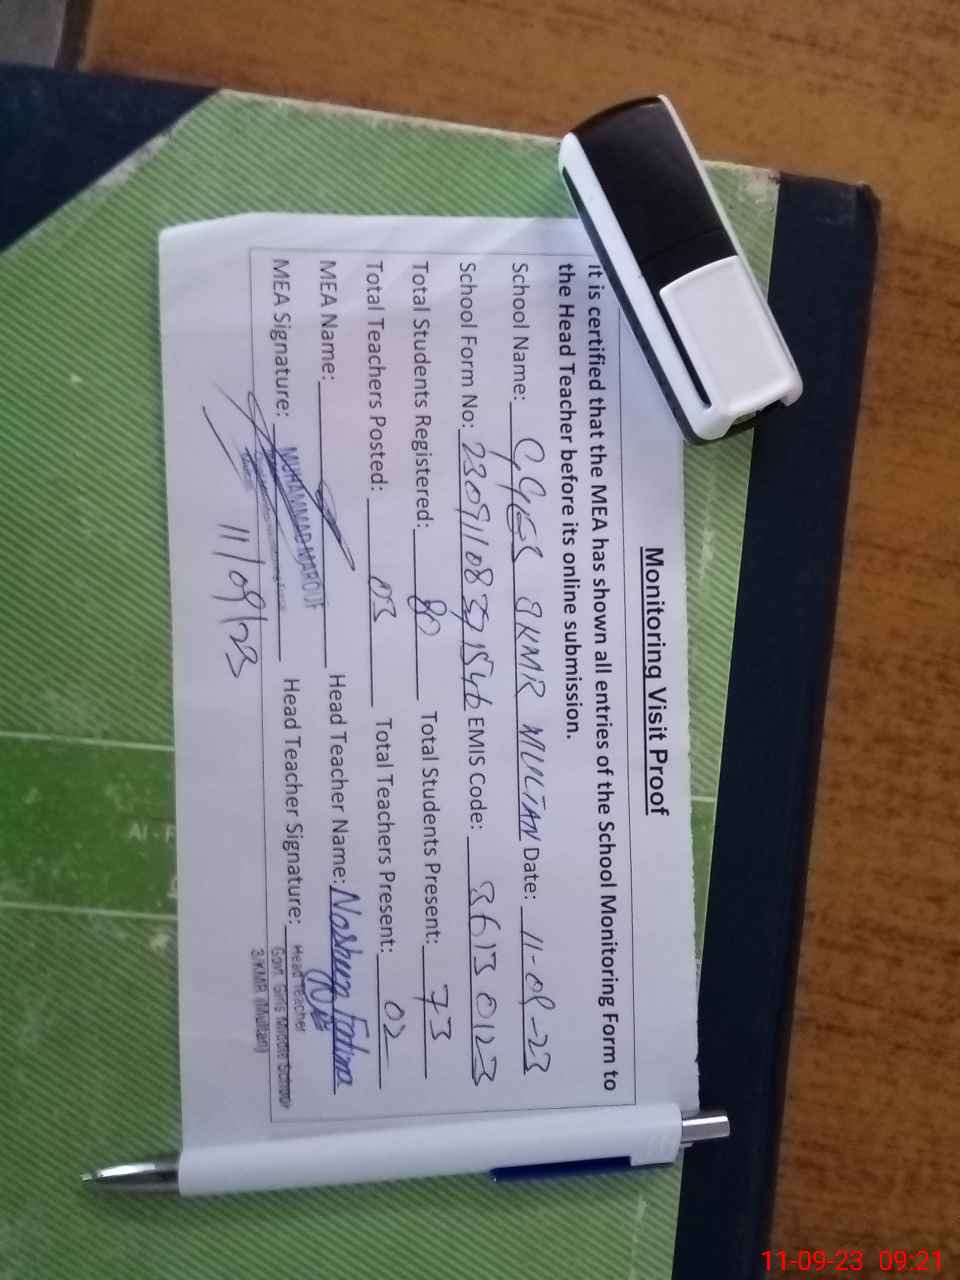 Monitoring Visit Proof
it is certified that the MEA has shown all entries of the School Monitoring Form to
the Head Teacher before its online submission.
School Name: GGES 3KMR MULTAN Date: 11-09-23
School Form No: EMIS Code: 36130123
Total Students Registered: 80 Total Students Present: 73
Total Teachers Posted: 03 Total Teachers Present: 02
MEA Name: Head Teacher Name: Nosheen Fatima
MEA Signature: MUHAMMAD MAROUF Head Teacher Signature:
Head Teacher
Govt. Girls Middle School
3/KMR (Multan)
11/09/23
11-09-23 09:21